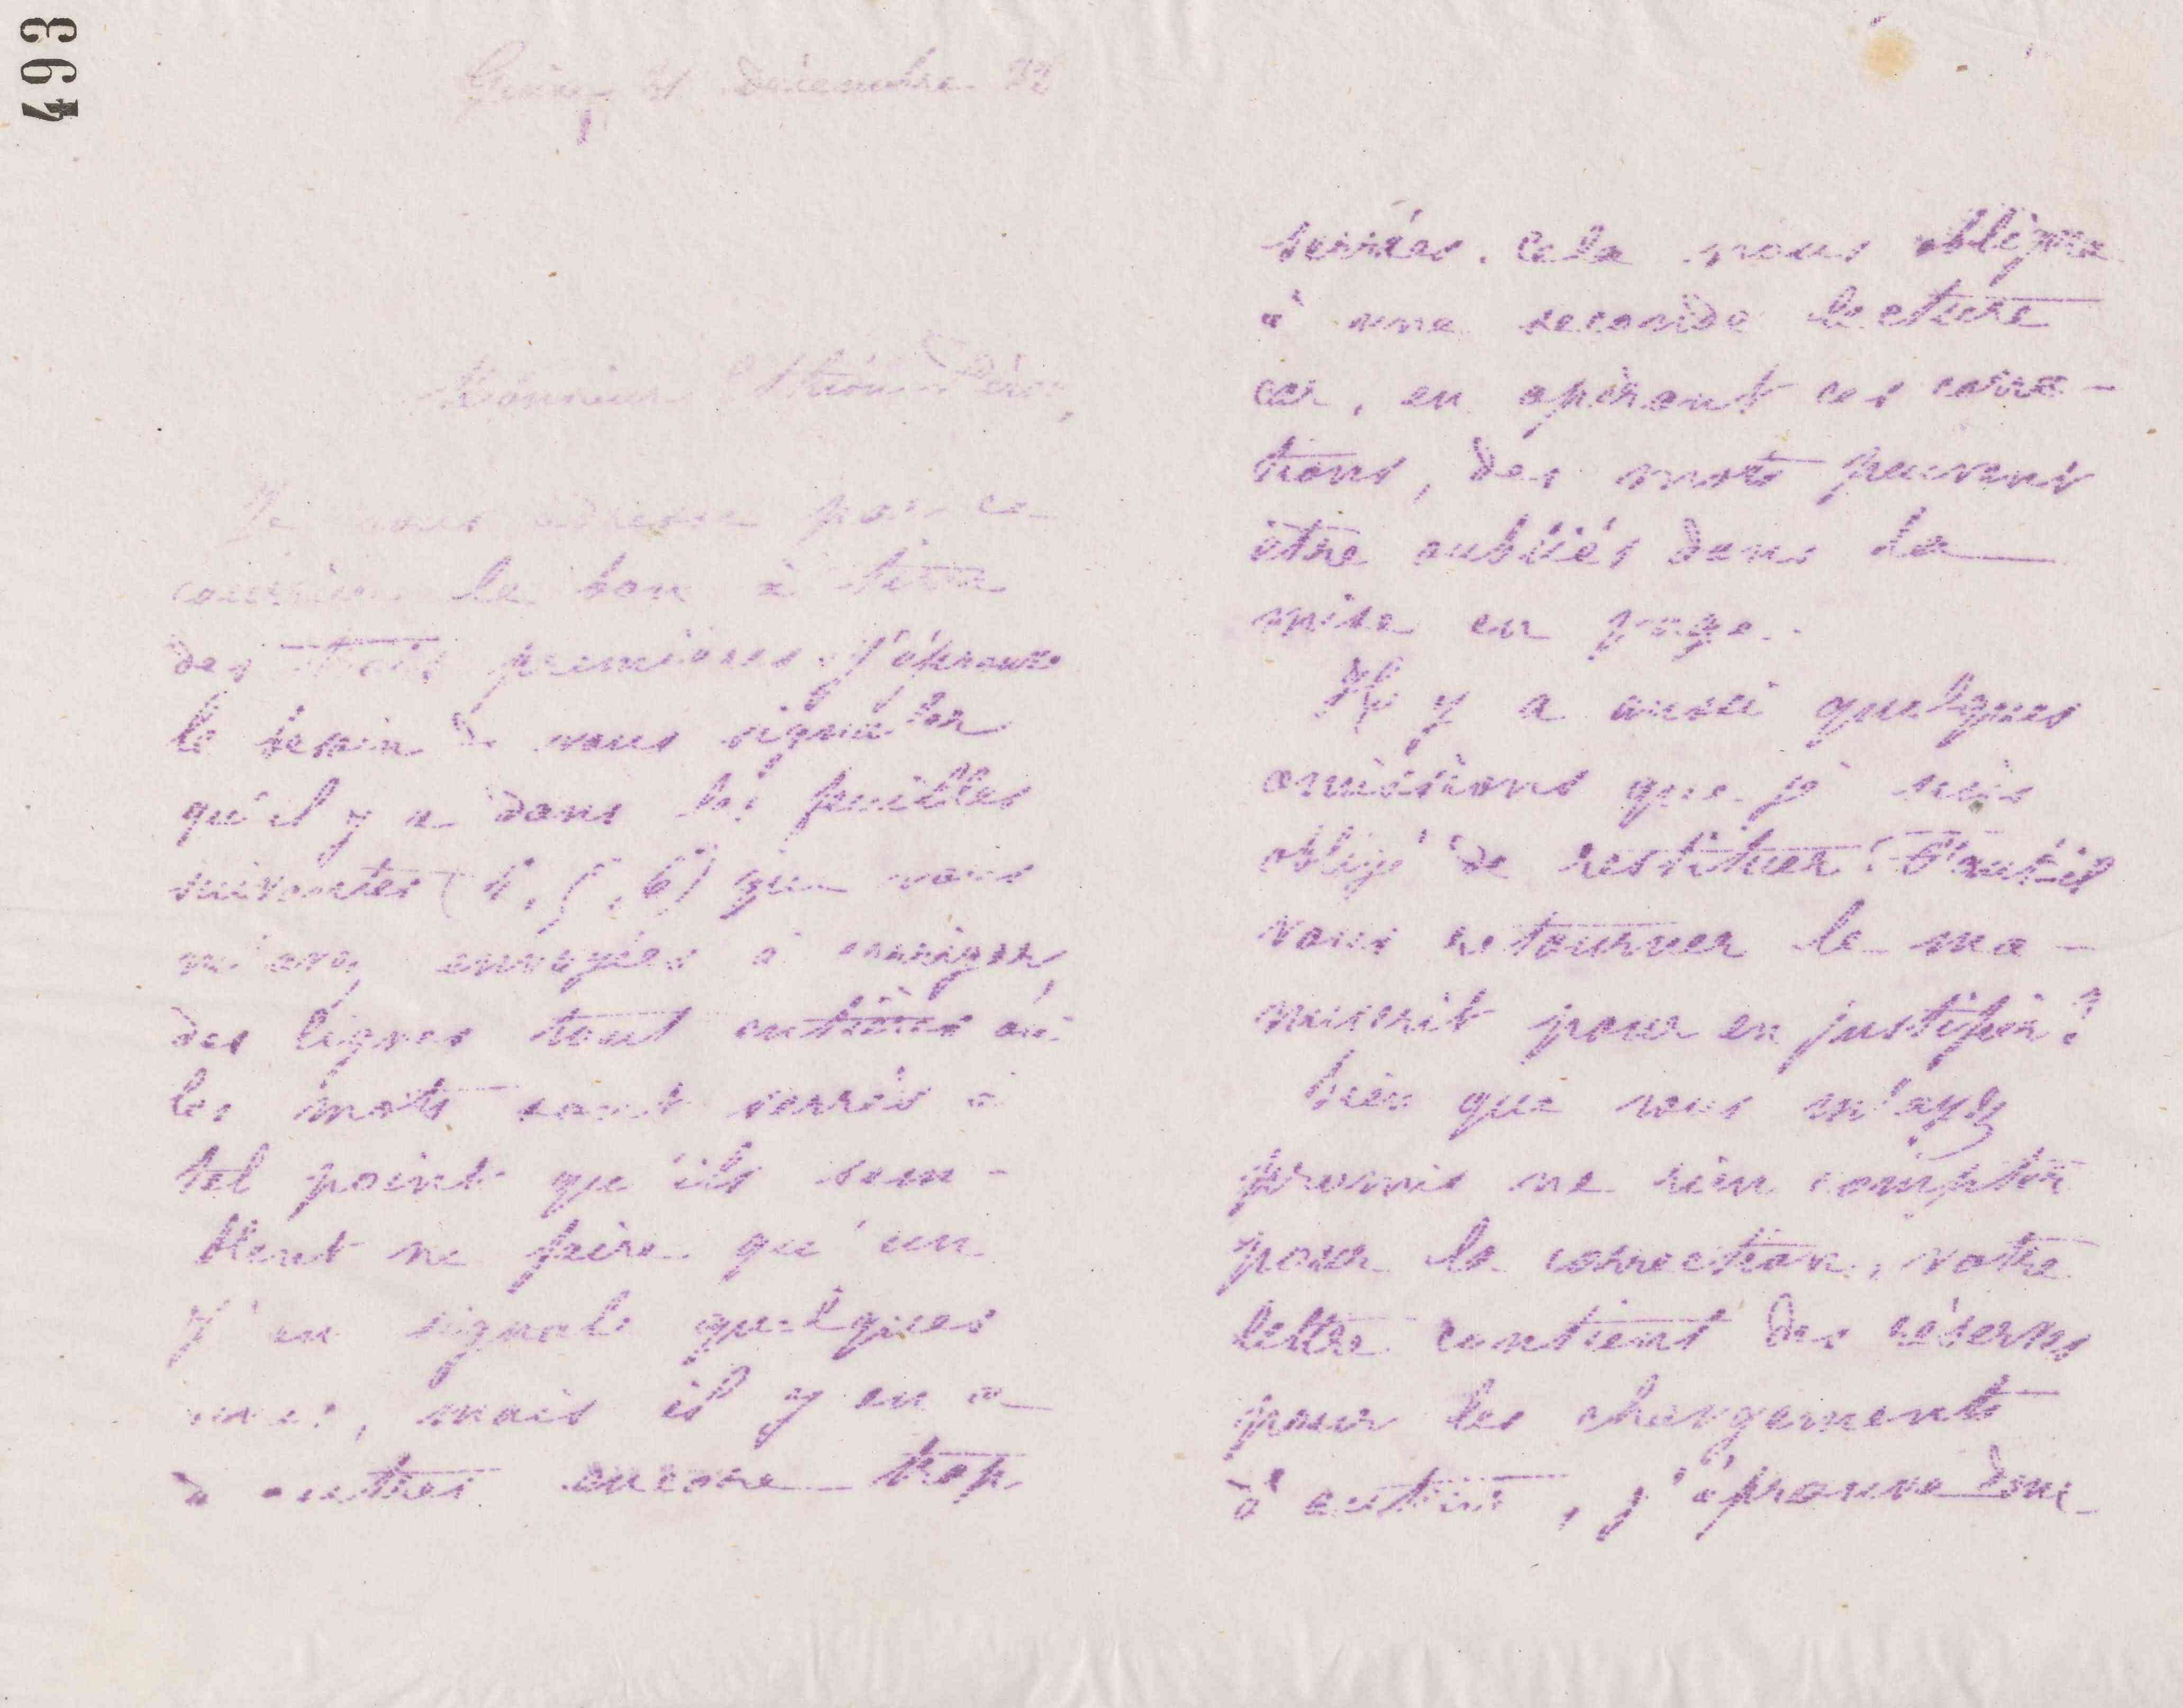 493
Guise 31 décembre 77
Monsieur
Je vous adresse par ce
courrier le bon à tirer
des trois premières. J'éprouve
le besoin de vous signaler
qu'il y a dans les feuilles
suivantes (4, 5, 6) que vous
m'avez envoyées à corriger,
des lignes tout entières où
les mots sont serrés à
tel point qu'ils sem-
blent ne faire qu'un
J'en signale quelques
unes, mais il y en a
d'autres encore trop
serrées. Cela nous obligera
à une seconde lecture
car, en opérant ces correc-
tions, des mots peuvent
être oubliés dans la
mise en page.
Il y a aussi quelques
omissions que je suis
obligé de restituer. Faut-il
vous retourner le ma-
nuscrit pour en justifier?
bien que vous m'ayez
promis ne rien compter
pour la correction, votre
lettre contient des réserves
pour les changements
d'auteur, j'éprouve donc